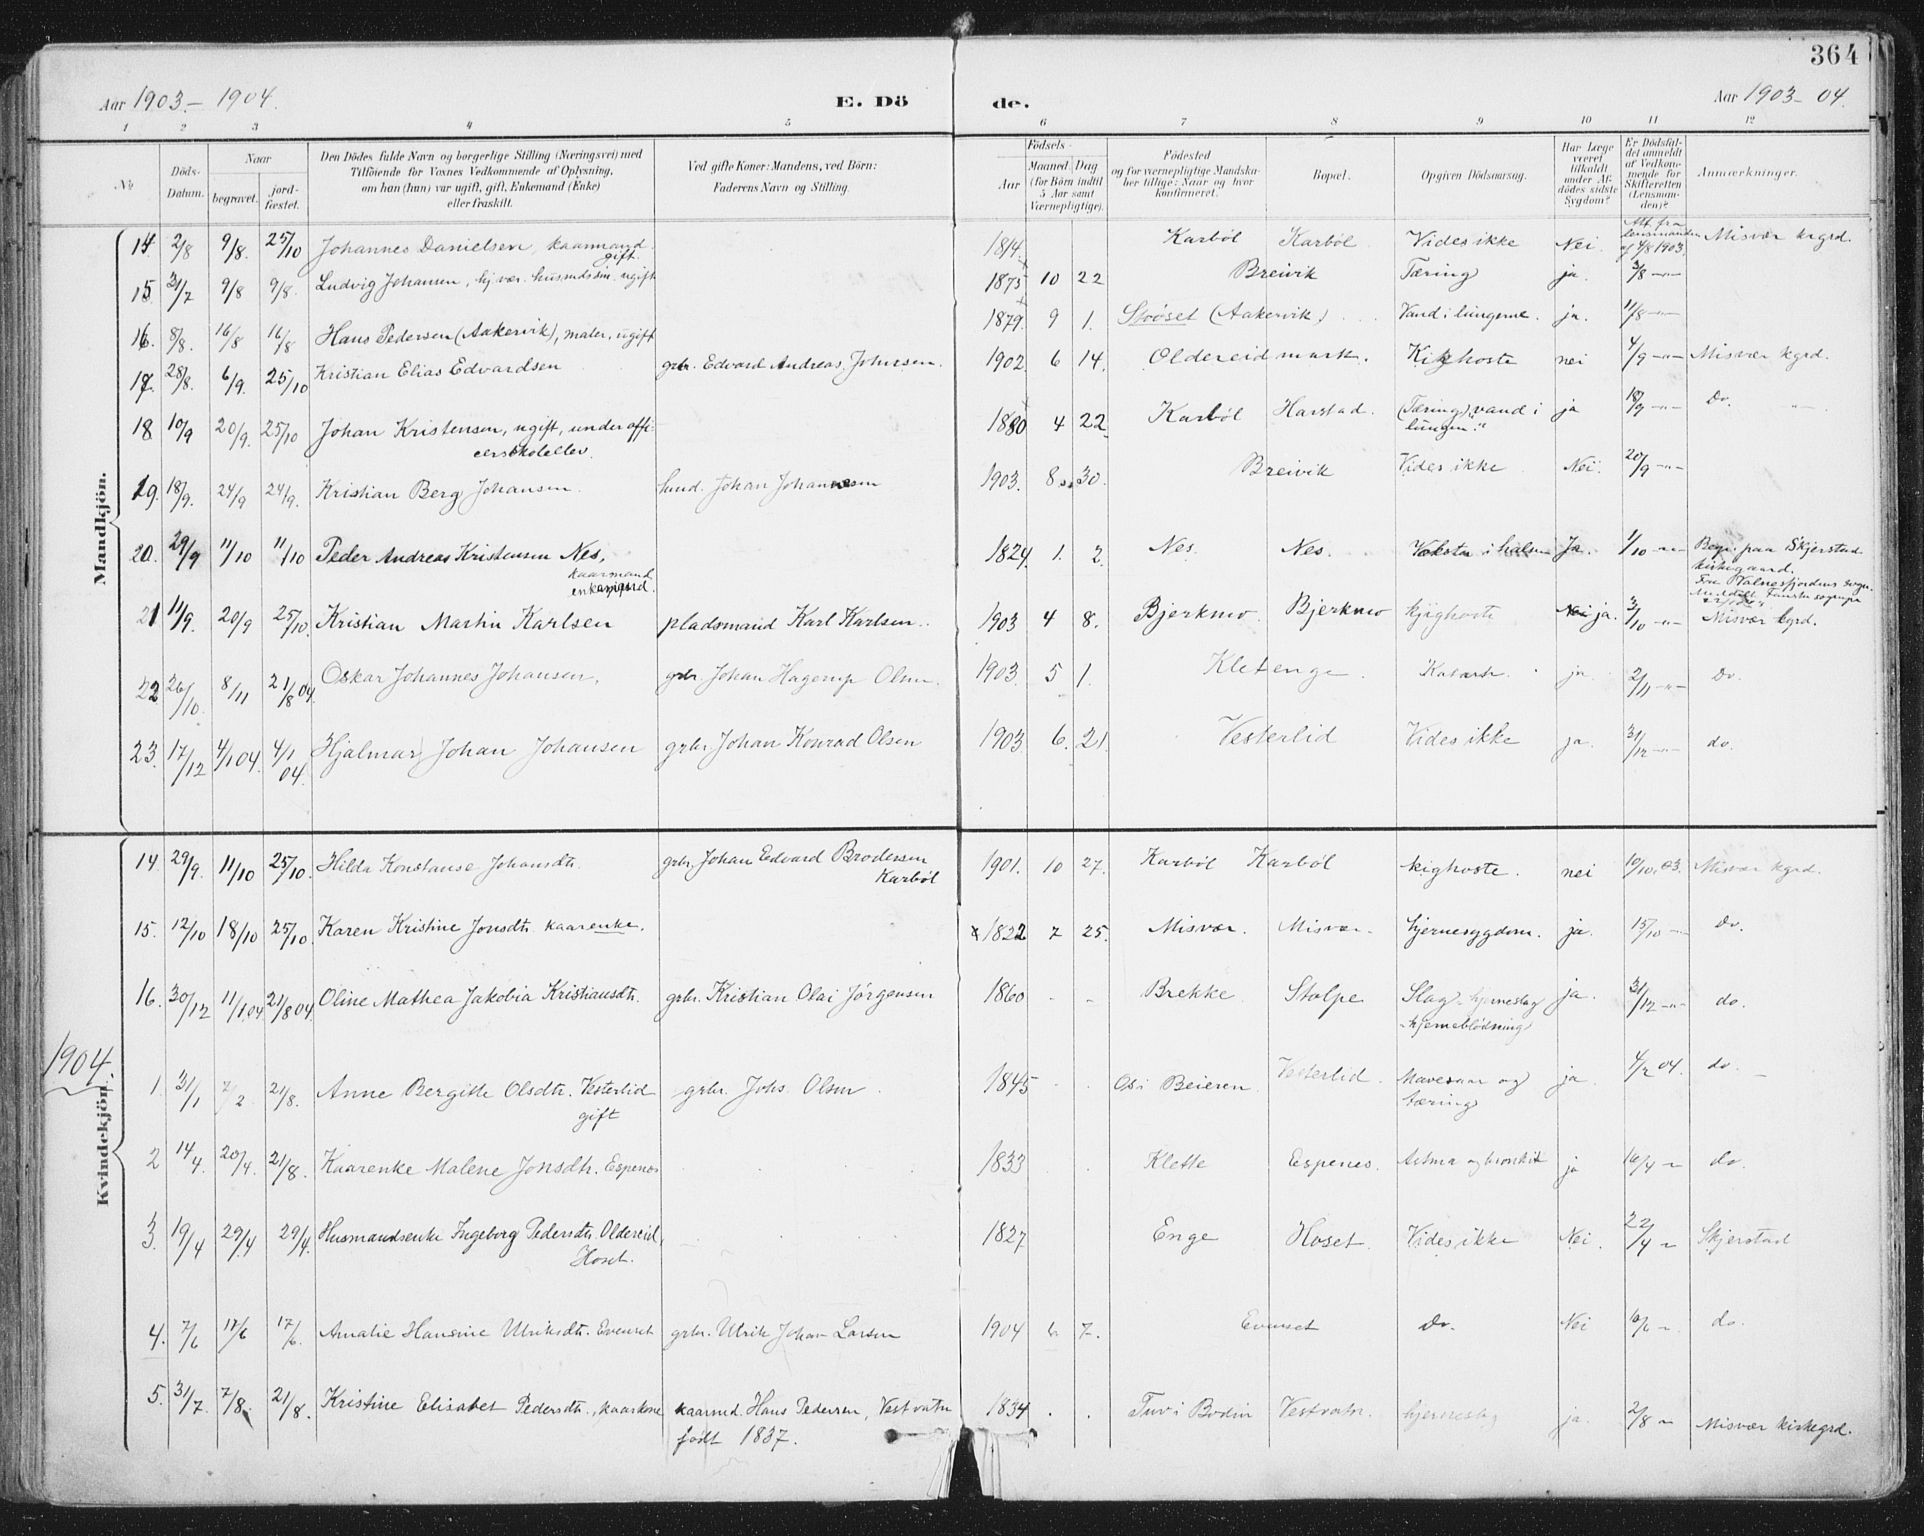 364
Aar 1903 - 1904.
E. Dö de.
Aar 1903 - 04.
1 2 3 4 5 6 7 8 9 10 11 12
No.
Döds-Datum.
Naar
begravet.
jord-fæstet.
Den Dödes fulde Navn og borgerlige Stilling (Næringsvei) med
Tilföiende for Voxnes Vedkommende af Oplysning,
om han (hun) var ugift, gift, Enkemand (Enke)
eller fraskilt.
Ved gifte Koner: Mandens, ved Börn:
Faderens Navn og Stilling.
Födsels-
Aar
Maaned Dag
(for Börn indtil
5 Aar samt
Værnepligtige).
Födested
og for værnepligtige Mandska-
ber tillige: Naar og hvor
konfirmeret.
Bopæl.
Opgiven Dödsaarsag.
Har Læge
været
tilkaldt
under Af-
dödes sidste
Sygdom?
Er Dödsfal-
det anmeldt
af Vedkom-
mende for
Skifteretten
(Lensman-
den)?
Anmærkninger.
Mandkjön.
14 2/8 9/8. 25/10 Johannes Danielsen, kaarmand gift. 1814. Karböl Karböl Vides ikke Nei. Att. fra lensmanden af 4/8 1903. Misvær kgrd.
15 31/7 9/8 9/8. Ludvig Johansen, hj. vær. husmdssøn. ugift 1875 10 22 Breivik Tæring ja. 3/8 -"-
16. 8/8. 16/8 16/8 Hans Pedersen (Aakervik), maler, ugift 1879. 9 1. (Aakervik) Vand i lungerne. ja. 11/8 -"-
17. 28/8. 6/9. 25/10 Kristian Elias Edvardsen gbr. Edvard Andreas Johnsen. 1902 6 14. Oldereid mark. Kighoste nei 4/9 -"- Misvær kgrd.
18 10/9 20/9. 25/10 Johan Kristensen, ugift, underoffi-
cersskoleelev. 1880 4 22. Karböl Harstad. (Tæring) "vand i
lungen." ja 18/9 -"- Do. -"-
19. 18/9. 24/9 24/9. Kristian Berg Johansen. Johan Johannesen 1903. 8 30. Breivik Vides ikke Nei. 20/9 -"-
20. 29/9 11/10 11/10 Peder Andreas Kristensen Nes,
kaarmand
enkemand. 1824. 1. 2. Nes. Nes. Vokster i halsen Ja. 1/10 -"- Begr. paa Skjerstad
kirkegaard.
21 11/9. 20/9 25/10. Kristian Martin Karlsen pladsmand Karl Karlsen. 1903 4 8. Bjerkmo. Bjerkmo kighoste Nei ja. 3/10 -"- Misvær kgrd.
22 26/10 8/11 21/8 04. Oskar Johannes Johansen. gbr. Johan Hagerup Olsen. 1903. 5 1. Kletenge. ja. 2/11 -"- Do.
23. 17/12 4/1 04. 4/1 04. Hjalmar Johan Johansen grbr. Johan Konrad Olsen 1903 6. 21. Vesterlid Vides ikke ja. 31/12 -"- do.
Kvindekjön.
14. 29/9. 11/10 25/10. Hilda Konstanse Johansdtr. grbr. Johan Edvard Brodersen
Karböl 1901. 10 27. Karböl Karböl kighoste. nei 10/10. 03. Misvær kgrd.
15. 12/10 18/10 25/10. Karen Kristine Jonsdtr. kaarenke. x 1822 7 25. Misvær. Misvær. hjernesygdom. ja. 15/10 -"- Do.
16. 30/12 11/1 04 21/8 04. Oline Mathea Jakobia Kristiansdtr. grbr. Kristian Olai Jørgensen 1860 - - Brekke Stolpe Slag - hjerneslag
- hjerneblödning ja. 31/12 -"- do.
1904.
1. 31/1 7/2 21/8. Anne Bergitte Olsdtr. Vesterlid
gift grbr. Johs. Olsen. 1845 . . Os i Beieren Vesterlid. Mavesaar og
tæring ja. 4/2 04. do.
2 14/4. 20/4. 21/8. Kaarenke Malene Jonsdtr. Espenes 1833 . Klette Espenes. Astma og bronkit ja 16/4 -"- do.
3. 19/4 29/4 29/4. Husmandsenke Ingeborg Pedersdtr. Oldereid,
Hoset. 1827 Enge Hoset. Vides ikke Nei. 22/4 -"- Skjerstad
4. 7/6 17/6 17/6. Amalie Hansine Ulriksdtr. Evenset grbr. Ulrik Johan Larsen 1904 6 7. Evenset Do. Nei 16/6 -"- do.
5. 31/7. 7/8. 21/8. Kristine Elisabet Pedersdtr., kaarkone kaarmd. Hans Pedersen, Vestvatn
født 1837. 1834 . . Tuv i Bodin Vestvatn. hjerneslag ja. 2/8 -"- Misvær kirkegrd.